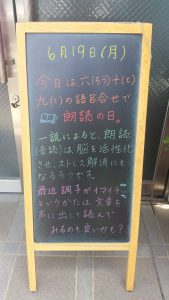 6月19日(月)
今日は六(ろう)十(と)
九(く)の語呂合せで
朗読の日。
一説によると、朗読
(音読)は脳を活性化
させ、ストレス解消にも
なるそうです。
最近調子がイマイチ...
というかたは、文章を
声に出して読んで
みるのも良いかも?